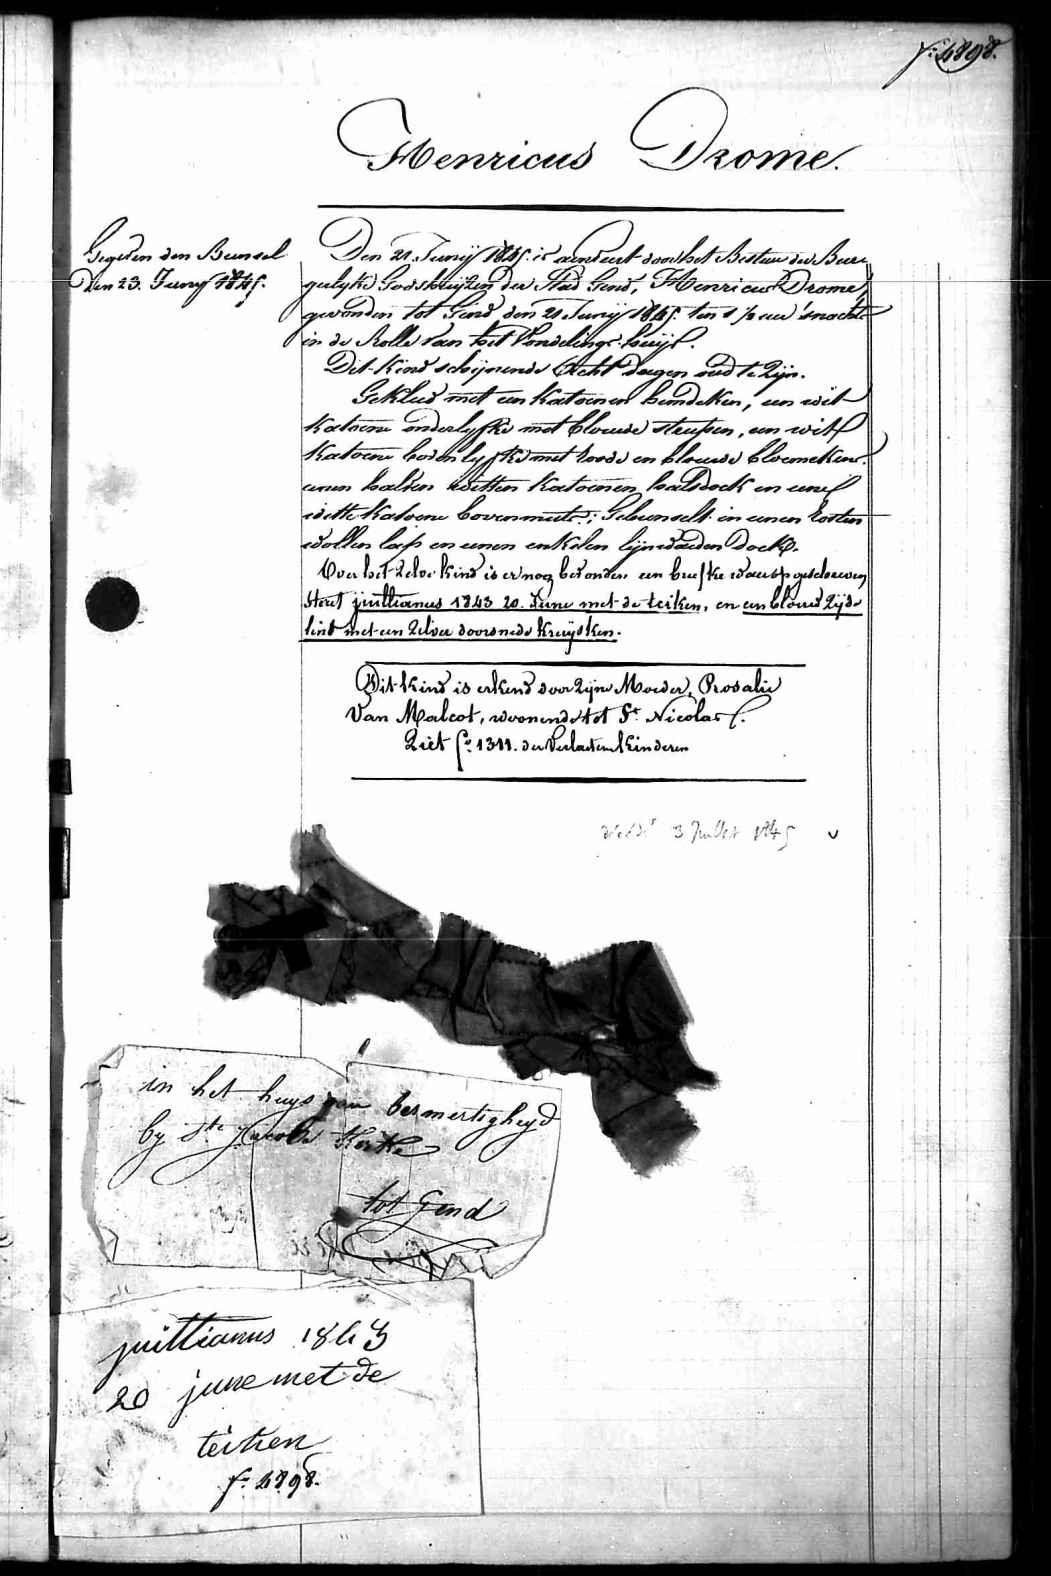 f:o 4898.
Henricus Drome.
Gegeven den Bunsel
Den 23. Junij 1845.
Den 21 Junij 1845. is aenveert door het Bestuer der Bure
gelyke Godshuijzen der Stad Gend, Henricus Drome,
gevonden tot Gend den 21 Junij 1845. ten 1 ½ uer s'nachts
in de Rolle van het Vondelings-huijs.
Dit kind schijnende Acht dagen oud te zijn.
Gekleed met een katoenen hemdeken, een wit
katoene onderlyfke met blouwe streepen, een wit
katoene bovenlyfke met roode en blouwe bloemeken.
eenen halven witten katoenen halsdoek en eene
witte katoene bovenmuts; Gebunselt in eenen
wollen lap en eenen enkelen lijnwaeden doek.
Over het zelve kind is er nog bevonden een briefke waerop geschreven
staet juittianus 1843 20. June met de teiken, en een blouw zijde
lint met een zilver doorsnede kruijsken.
Dit kind is erkend door zijne Moeder, Rosalie
Van Malcot, woonende tot St. Nicolas.
Ziet fo. 1311. der Verlaeten kinderen
3 Juillet 1845
in het huys van bermertigheyd
by Ste Jacobs Kerke
tot Gend
juittianus 1843
20 june met de
teiken
f:o 4898.